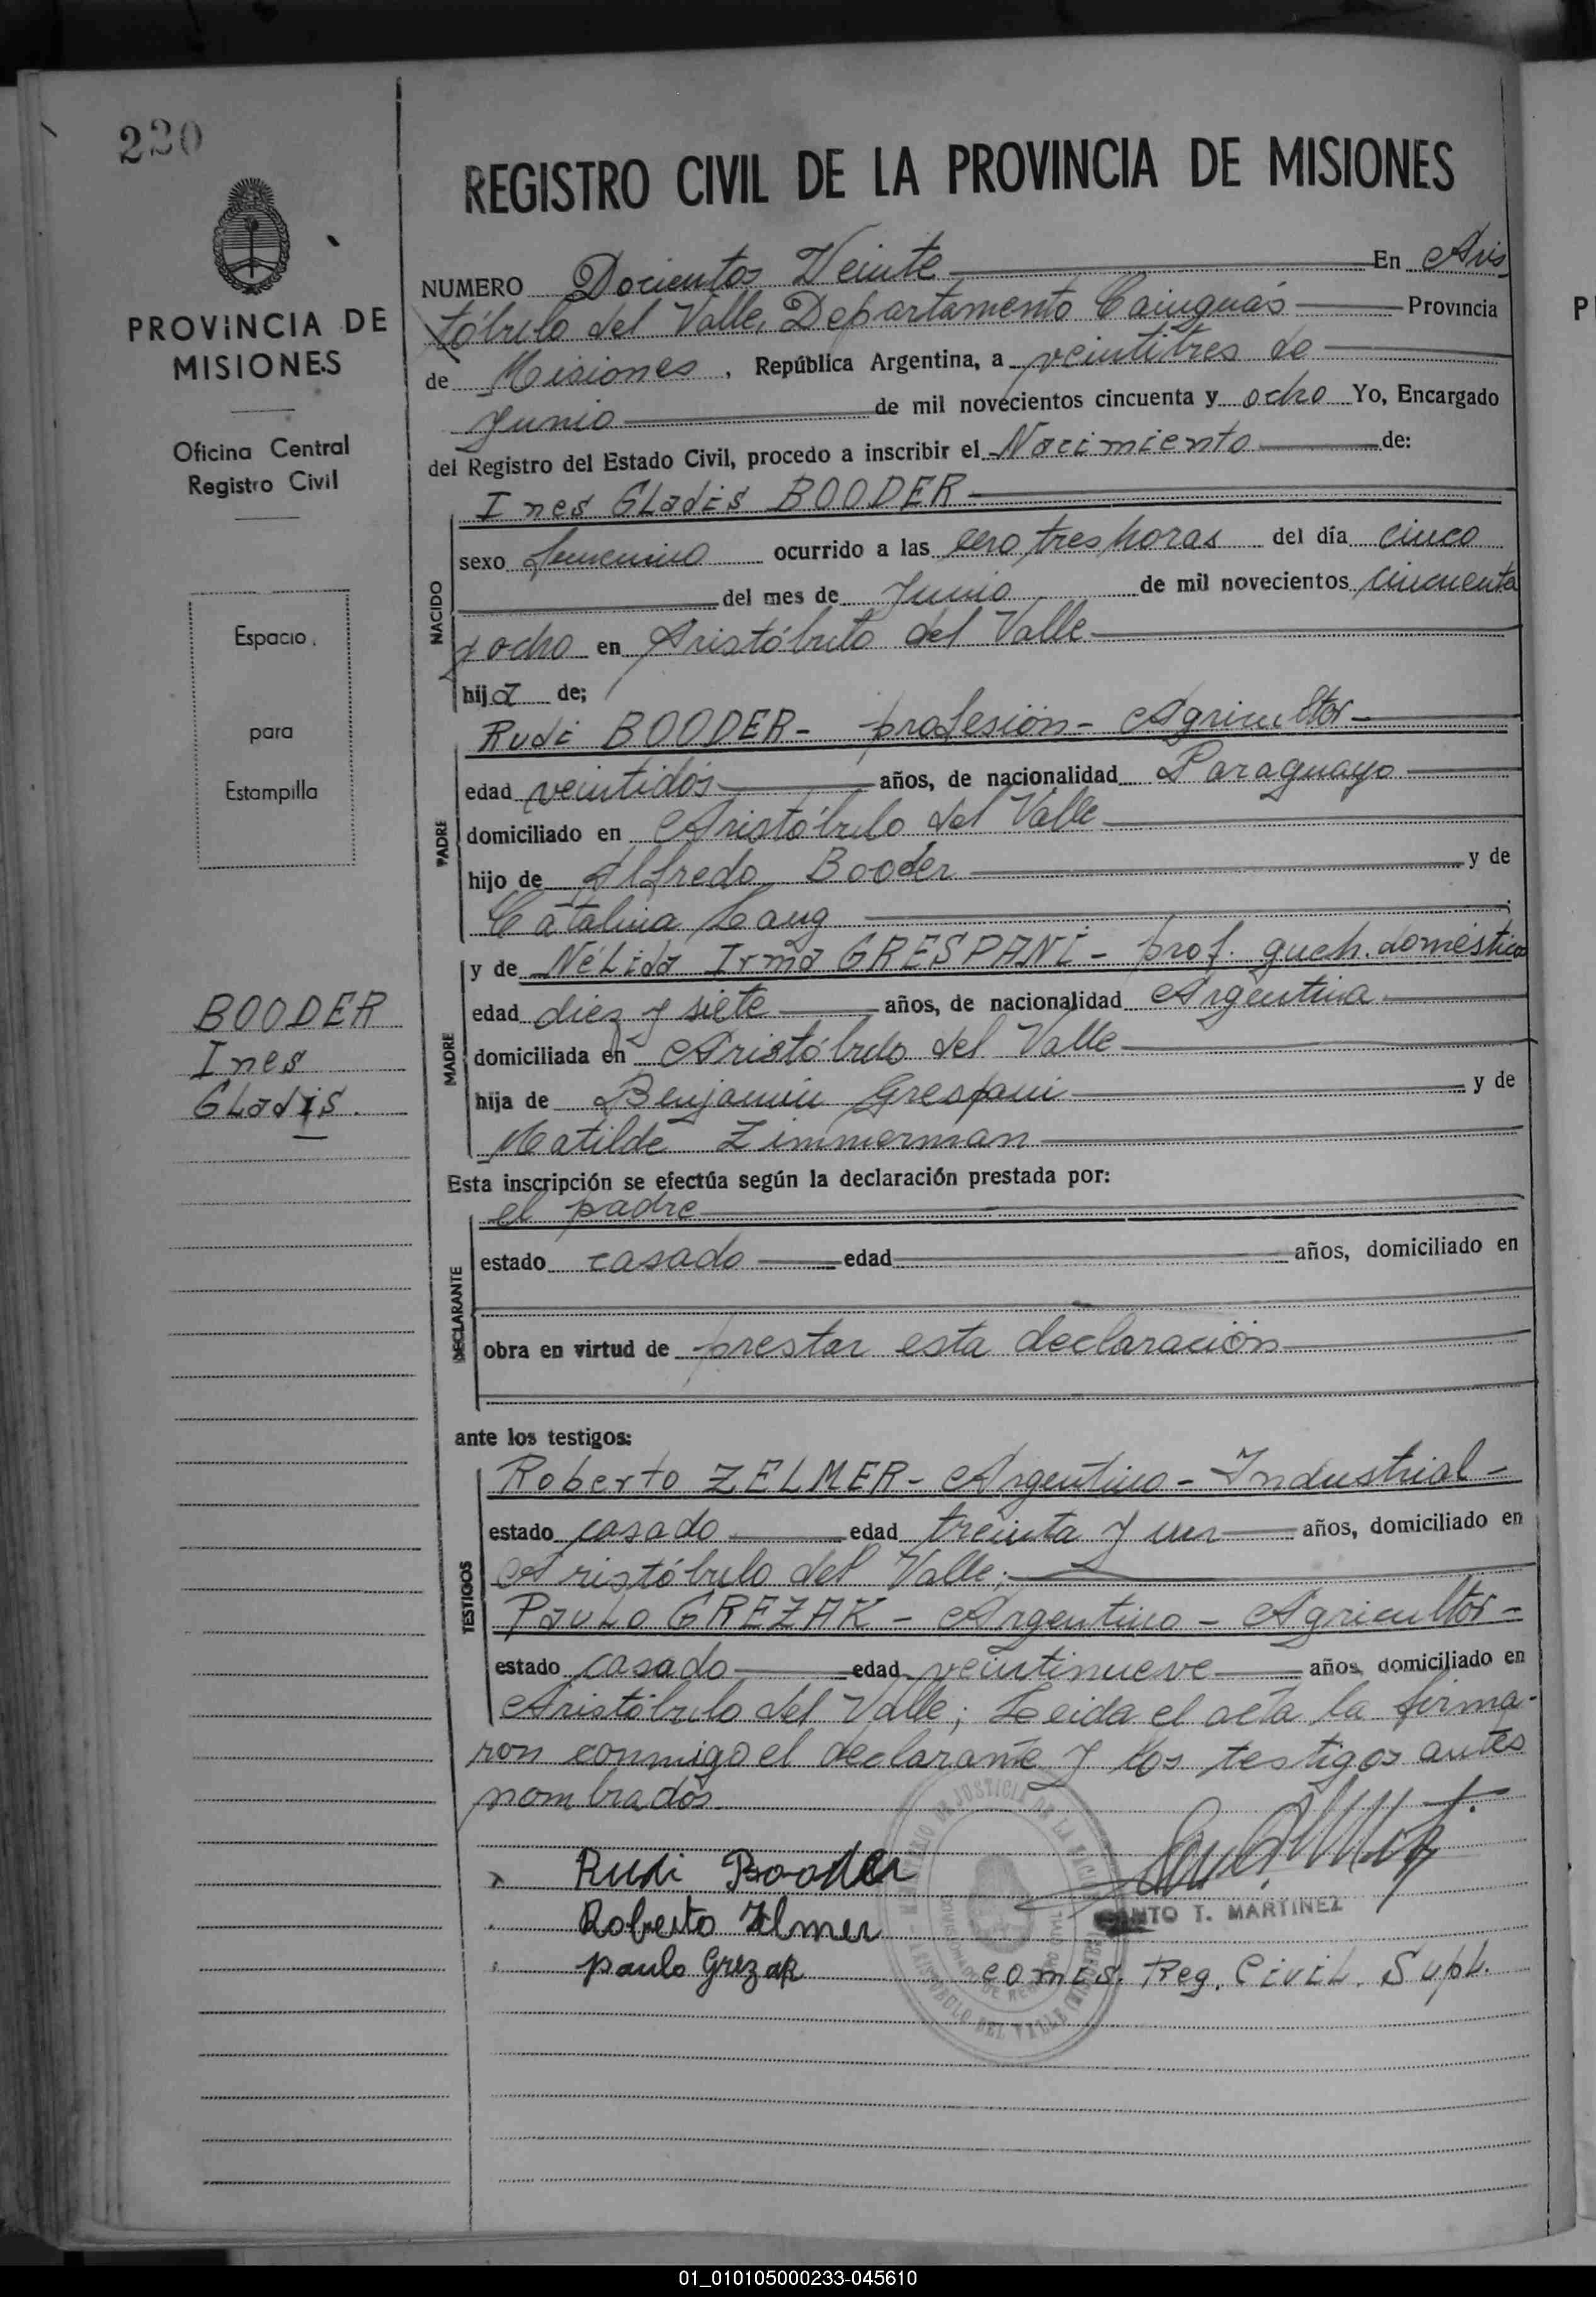 220
PROVINCIA DE
MISIONES
Oficina Central
Registro Civil
Espacio
para
Estampilla
BOODER
Ines
GLadis.
REGISTRO CIVIL DE LA PROVINCIA DE MISIONES
NUMERO Docientos Veinte En Aris
tóbulo del Valle, Departamento Cainguás Provincia
de Misiones, República Argentina, a veintitres de
Junio de mil novecientos cincuenta y ocho Yo, Encargado
del Registro del Estado Civil, procedo a inscribir el Nacimiento de:
Ines GLadis BOODER
NACIDO
sexo femenino ocurrido a las cero tres horas del día cinco
del mes de Junio de mil novecientos cincuenta
y ocho en Aristóbulo del Valle
hija de;
Rudi BOODER- profesión- Agricultor-
PADRE
edad veintidós años, de nacionalidad Paraguayo
domiciliado en Aristóbulo del Valle
hijo de Alfredo Booder y de
Catalina Lang
y de NéLida Irma GRESPANI- prof. queh. doméstico
MADRE
edad diez y siete años, de nacionalidad Argentina
domiciliada en Aristóbulo del Valle
hija de Benjamin Grespani y de
Matilde Zimmerman
Esta inscripción se efectúa según la declaración prestada por:
el padre
DECLARANTE
estado casado edad años, domiciliado en
obra en virtud de prestar esta declaración
ante los testigos:
Roberto ZELMER- Argentino- Industrial-
TESTIGOS
estado casado edad treinta y un años, domiciliado en
Aristóbulo del Valle;
PauLo GREZAK- Argentino- Agricultor-
estado casado edad veintinueve años, domiciliado en
Aristóbulo del Valle; Leida el acta la firma-
ron conmigo el declarante y los testigos antes
nombrados
Rudi Booder
Roberto Zelmer
Paulo Grezak
T. MARTINEZ
comis. Reg. CiviL. SupL.
JUSTICIA DE LA NACION
DEL VALLE
P
01_010105000233-045610